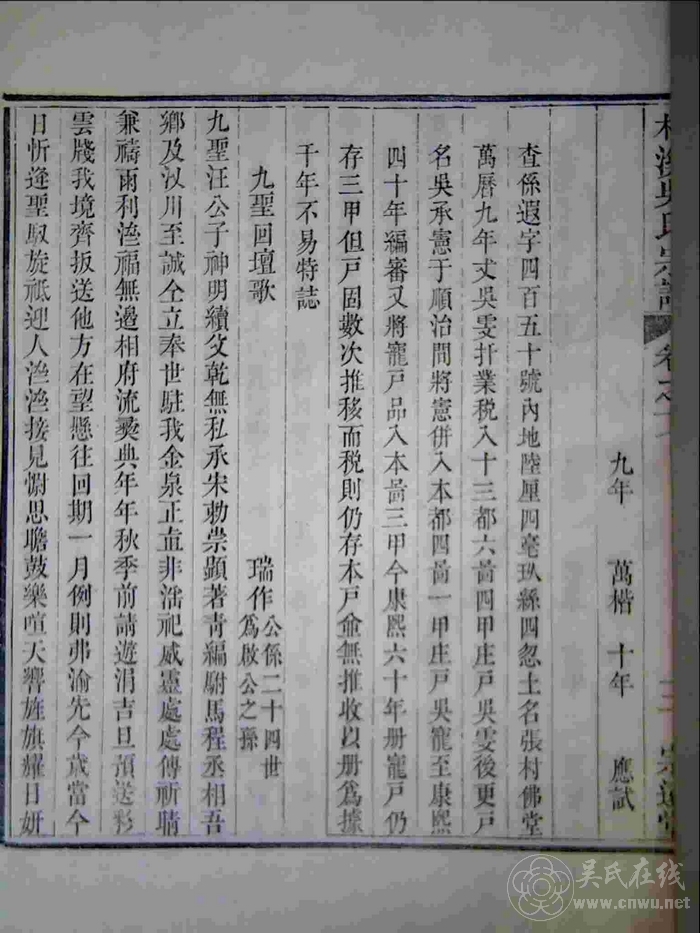 九年　萬楷　十年　應試
查係遐字四百五十號內地陸厘四毫玖絲四忽土名張村佛堂
萬曆九年丈吳雯扞業稅入十三都六啚四甲庄戶吳雯後更戶
名吳承憲于順治間將憲併入本都四啚一甲庄戶吳寵至康熙
四十年編審又將寵戶品入本啚三甲今康熙六十年册寵戶仍
存三甲但戶固數次推移而稅則仍存本戶並無推收以册爲據
千年不易特誌
九聖回壇歌　瑞作公係二十四世爲啟公之孫
九聖汪公子神明續父乾無私承宋勅崇顯著靑編駙馬程丞相吾
鄉及汊川至誠仝立奉世駐我金泉正直非滛祀威靈處處傳祈晴
兼禱雨利澁福無邊相府流彛典年年秋季前請遊涓吉旦預送彩
雲牋我境齊扳送他方在望懸往回期一月例則弗渝先今歲當今
日忻逢聖馭旋祗迎人濟濟接見愾思瞻鼓樂喧天響旌旗耀日妍
吳氏宗譜
吴氏在线
www.cnwu.net